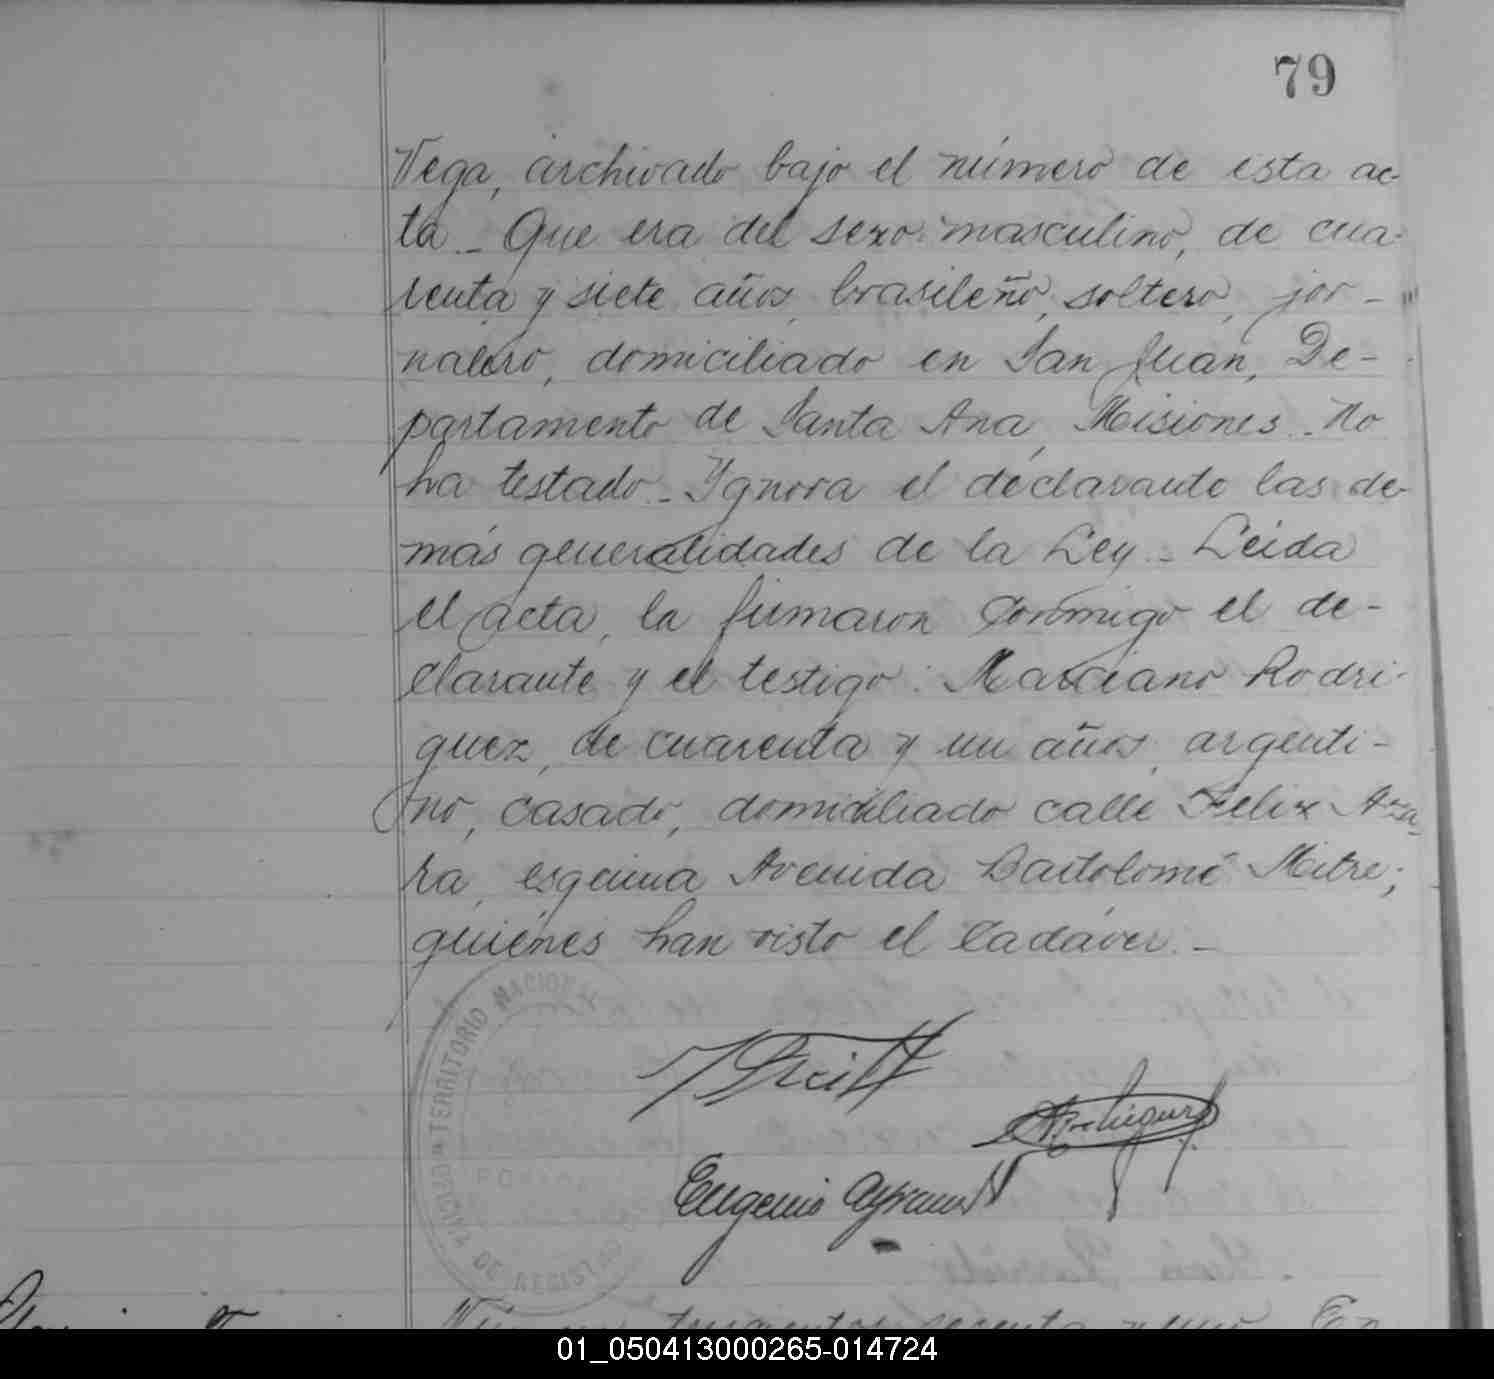 79
Vega, archivado bajo el número de esta ac-
ta_ Que era del sexo masculino, de cua-
renta y siete años, brasileño, soltero, jor-
nalero, domiciliado en San Juan, De-
partamento de Santa Ana, Misiones. No
ha testado_ Ygnora el declarante las de-
más generalidades de la Ley_ Leída
el acta, la firmaron conmigo el de-
clarante y el testigo: Marciano Rodri-
guez, de cuarenta y un años, argenti-
no, casado, domiciliado calle Felix Aza-
ra, esquina Avenida Bartolomé Mitre;
quiénes han visto el cadáver._
TERRITORIO NACIONAL
Eugenio
DE REGISTRO
trescientos sesenta y uno
01_050413000265-014724